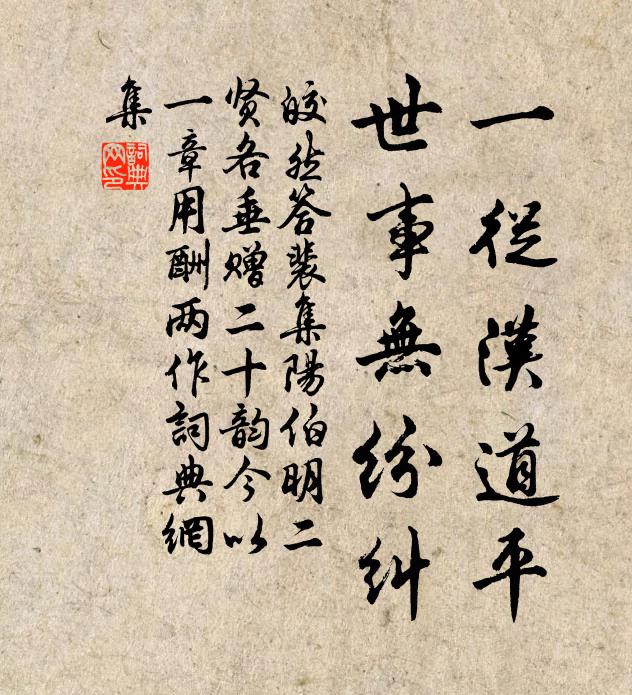 一從漢道平
世事無紛糾
皎然答裴集陽伯明二
贤各垂赠二十韵今以
一章用酬两作詞典網
集
詞典
网印